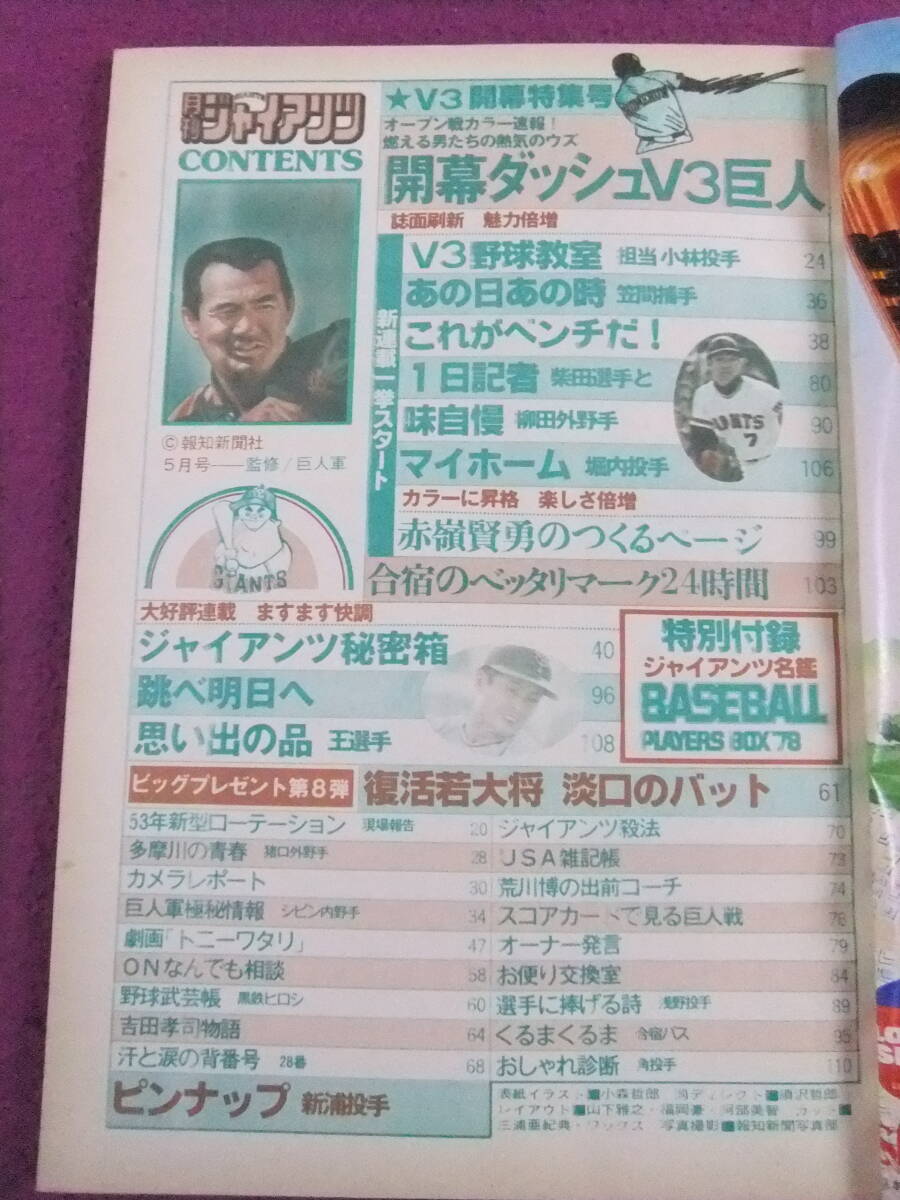 月刊ジャイアンツ
CONTENTS
©報知新聞社
5月号──監修/巨人軍
GIANTS
★V3開幕特集号
オープン戦カラー速報!
燃える男たちの熱気のウズ
開幕ダッシュV3巨人
誌面刷新 魅力倍増
新連載一挙スタート
V3野球教室 担当 小林投手 24
あの日あの時 笠間捕手 36
これがベンチだ! 38
1日記者 柴田選手と 80
味自慢 柳田外野手 90
マイホーム 堀内投手 106
カラーに昇格 楽しさ倍増
赤嶺賢勇のつくるページ 99
合宿のベッタリマーク24時間 103
大好評連載 ますます快調
ジャイアンツ秘密箱 40
跳べ明日へ 96
思い出の品 王選手 108
特別付録
ジャイアンツ名鑑
BASEBALL
PLAYERS BOX '78
ビッグプレゼント第8弾 復活若大将 淡口のバット 61
53年新型ローテーション 現場報告 20
多摩川の青春 猪口外野手 28
カメラレポート 30
巨人軍極秘情報 シピン内野手 34
劇画「トニーワタリ」 47
ONなんでも相談 58
野球武芸帳 黒鉄ヒロシ 60
吉田孝司物語 64
汗と涙の背番号 28番 68
ジャイアンツ殺法 70
USA雑記帳 73
荒川博の出前コーチ 74
スコアカードで見る巨人戦 76
オーナー発言 79
お便り交換室 84
選手に捧げる詩 浅野投手 89
くるまくるま 合宿バス 95
おしゃれ診断 角投手 110
ピンナップ 新浦投手
表紙イラスト■小森哲郎 同ディレクト■須沢哲郎
レイアウト■山下雅之・福岡豪・阿部美智 カット■
三浦亜紀典・ワックス 写真撮影■報知新聞写真部